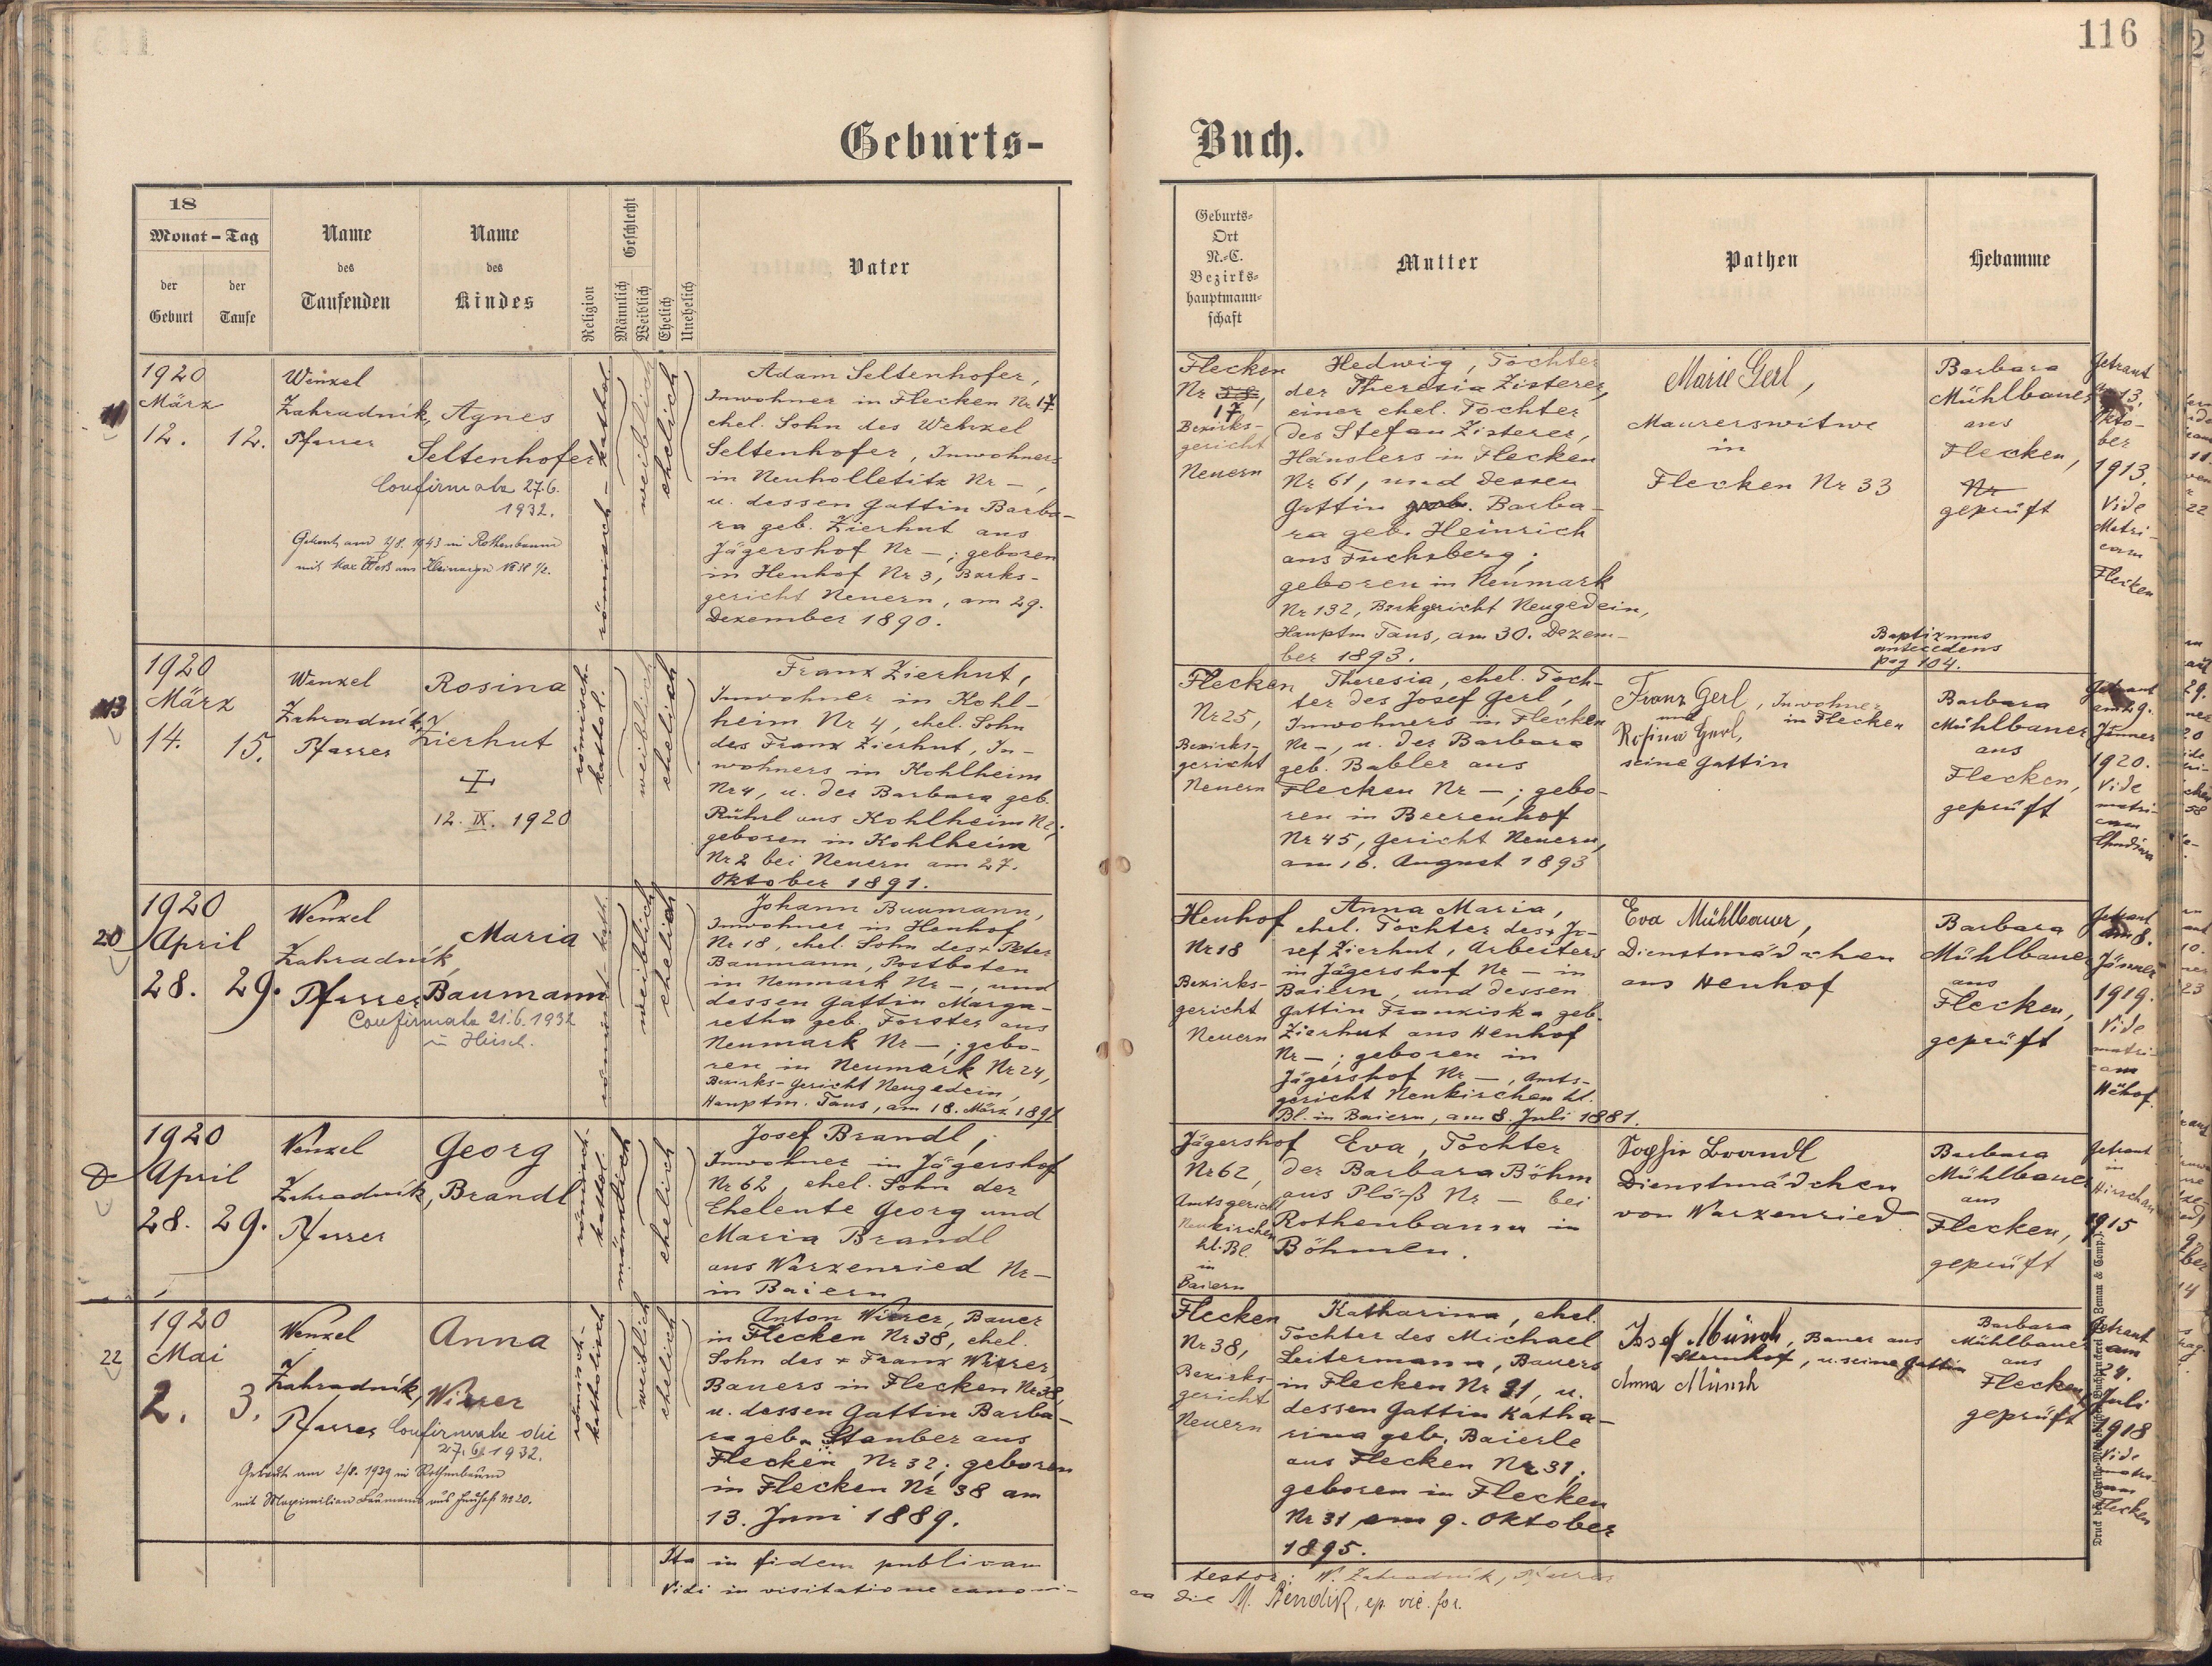 116
Geburts-
Buch.
18
Monat – Tag
der Geburt
der Taufe
Name
des
Taufenden
Name
des
Kindes
Religion
Geschlecht
Männlich
Weiblich
Ehelich
Unehelich
Vater
Geburts-
Ort
N.-C.
Bezirks-
hauptmann-
schaft
Mutter
Pathen
Hebamme
1920
März
12. 12.
Wenzel
Zahradník,
Pfarrer
Agnes
Seltenhofer
Confirmata 27.6.
1932.
Getraut am 2/8. 1943 in Rothenbaum
römisch-kathol.
weiblich
ehelich
Adam Seltenhofer,
Inwohner in Flecken Nr 17
ehel. Sohn des Wenzel
Seltenhofer, Inwohners
in Neuholletitz Nr –,
u. dessen Gattin Barba-
ra geb. Zierhut aus
Jägershof Nr –; geboren
in Henhof Nr 3, Bzrks-
gericht Neuern, am 29.
Dezember 1890.
Flecken
Nr 38,
17
Bezirks-
gericht
Neuern
Hedwig, Tochter
der Theresia Zisterer,
einer ehel. Tochter
des Stefan Zisterer,
Häuslers in Flecken
Nr 61, und dessen
Gattin geb. Barba-
ra geb. Heinrich
aus Fuchsberg;
geboren in Neumark
Nr 132, Bzrkgericht Neugedein,
Hauptm Taus, am 30. Dezem-
ber 1893.
Marie Gerl,
Maurerswitwe
in
Flecken Nr 33
Barbara
Mühlbauer
aus
Flecken,
Nr
geprüft
Getraut
13.
Okto-
ber
1913.
Vide
Matri-
cam
Flecken
Baptizmus
antecedens
pag 104.
13
1920
März
14. 15.
Wenzel
Zahradník,
Pfarrer
Rosina
Zierhut
12. IX. 1920
römisch-
kathol.
weiblich
ehelich
Franz Zierhut,
Inwohner in Kohl-
heim Nr 4, ehel. Sohn
des Franz Zierhut, In-
wohners in Kohlheim
Nr 4, u. der Barbara geb.
Rührl aus Kohlheim Nr;
geboren in Kohlheim
Nr 2 bei Neuern am 27.
Oktober 1891.
Flecken
Nr 25,
Bezirks-
gericht
Neuern
Theresia, ehel. Toch-
ter des Josef Gerl,
Inwohners in Flecken
Nr –, u. der Barbara
geb. Babler aus
Flecken Nr –; gebo-
ren in Beerenhof
Nr 45, Gericht Neuern,
am 16. August 1893
Franz Gerl, Inwohner
und in Flecken
Rosina Gerl,
seine Gattin
Barbara
Mühlbauer
aus
Flecken,
geprüft
Getraut
am 29.
Jänner
1920.
Vide
matri-
cam
20
1920
April
28. 29.
Wenzel
Zahradník,
Pfarrer
Maria
Baumann
Confirmata 21.6.1932
in Hirsch.
römisch-kath.
weiblich
ehelich
Johann Baumann,
Inwohner in Henhof
Nr 18, ehel. Sohn des + Peter
Baumann, Postboten
in Neumark Nr –, und
dessen Gattin Marga-
retha geb. Forster aus
Neumark Nr –; gebo-
ren in Neumark Nr 24,
Bezirks-Gericht Neugedein,
Hauptm. Taus, am 18. März 1891
Henhof
Nr 18
Bezirks-
gericht
Neuern
Anna Maria,
ehel. Tochter des + Jo-
sef Zierhut, Arbeiters
in Jägershof Nr – in
Baiern, und dessen
Gattin Franziska geb.
Zierhut aus Henhof
Nr –; geboren in
Jägershof Nr –, Amts-
gericht Neukirchen hl.
Bl. in Baiern, am 8. Juli 1881.
Eva Mühlbauer,
Dienstmädchen
aus Henhof
Barbara
Mühlbauer
aus
Flecken,
geprüft
Getraut
am 8.
Jänner
1919.
Vide
matri-
cam
Hehof.
1920
April
28. 29.
Wenzel
Zahradník,
Pfarrer
Georg
Brandl
römisch-
kathol.
männlich
ehelich
Josef Brandl,
Inwohner in Jägershof
Nr 62, ehel. Sohn der
Eheleute Georg und
Maria Brandl
aus Warzenried Nr –
in Baiern
Jägershof
Nr 62,
Amtsgericht
Neukirchen
hl. Bl.
in
Baiern
Eva, Tochter
der Barbara Böhm
aus Plöß Nr – bei
Rothenbaum in
Böhmen.
Sophie Brandl
Dienstmädchen
von Warzenried
Barbara
Mühlbauer
aus
Flecken,
geprüft
Getraut
in
Hirschau
1915
22
1920
Mai
2. 3.
Wenzel
Zahradník,
Pfarrer
Anna
Wirrer
Confirmata die
27.6.1932.
Getraut am 2/8. 1939 in Rothenbaum
mit Maximilian Baumann aus Henhof No 20.
römisch-
katholisch
weiblich
ehelich
Anton Wirrer, Bauer
in Flecken Nr 38, ehel.
Sohn des + Franz Wirrer,
Bauers in Flecken Nr 38,
u. dessen Gattin Barba-
ra geb. Stauber aus
Flecken Nr 32; geboren
in Flecken Nr 38 am
13. Juni 1889.
Flecken
Nr 38,
Bezirks-
gericht
Neuern
Katharina, ehel.
Tochter des Michael
Leitermann, Bauers
in Flecken Nr 31, u.
dessen Gattin Katha-
rina geb. Baierle
aus Flecken Nr 31;
geboren in Flecken
Nr 31 am 9. Oktober
1895.
Josef Münch, Bauer aus
Sternhof, u. seine Gattin
Anna Münch
Barbara
Mühlbauer
aus
Flecken,
geprüft
Getraut
am
24.
Juli
1918
Vide
matri-
cam
Flecken
Ita in fidem publicam
testor: W. Zahradník, Pfarrer
Vidi in visitatione canoni-
ca die M. Bendik, ep. vic. for.